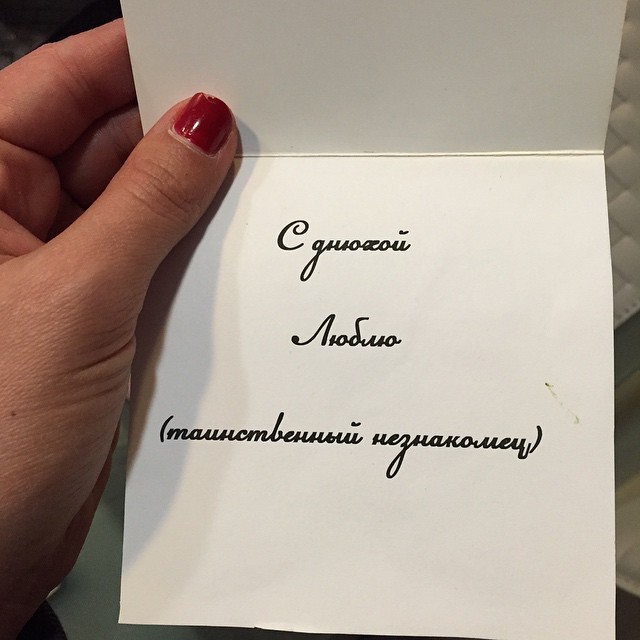 С днюхой
Люблю
(таинственный незнакомец)